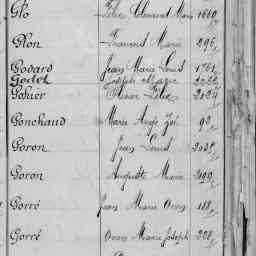 Glo Felix Clement Marie 1660
Glon Francois Marie 296
Godard Jean Marie Louis 1761
Godet Joseph Marie
Gohier Olivier Félix 2134
Gonchaud Marie Ange Joe 92
Goron Jean Louis
Goron Auguste Marie 299
Gorré Jean Marie 188
Gorré Marie Joseph 228